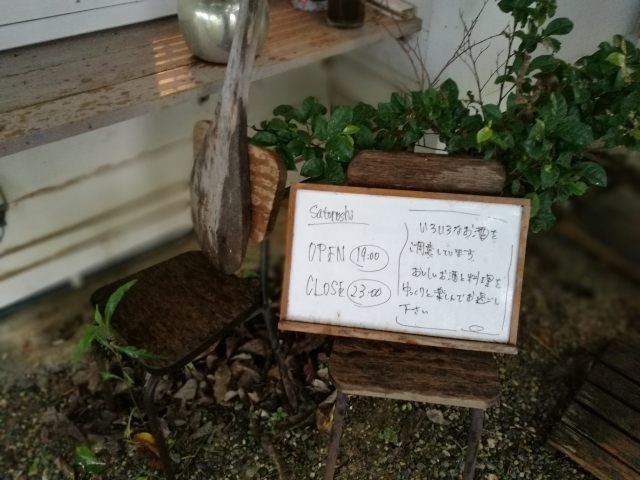 OPEN 19:00
CLOSE 23:00
いろいろなお酒を
ご用意しています。
おいしいお酒と料理を
ゆっくりと楽しんでお過ごし
下さい